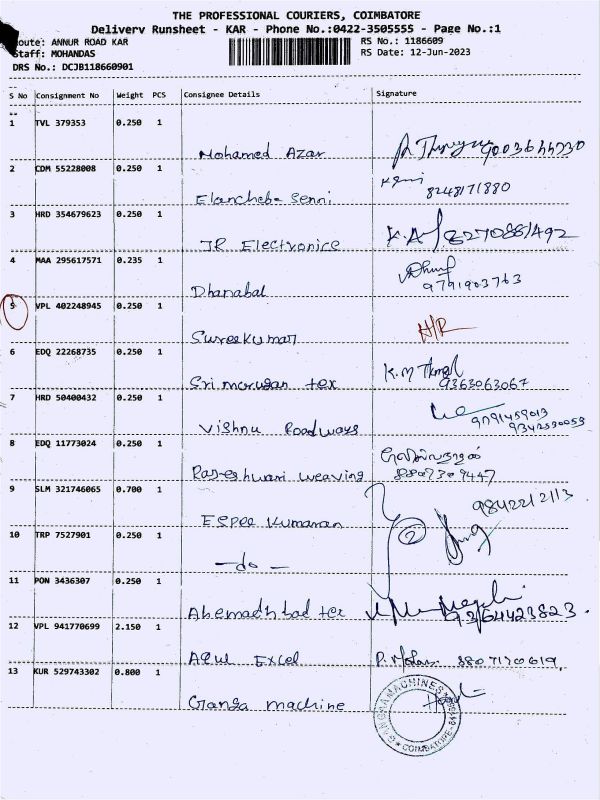 THE PROFESSIONAL COURIERS, COIMBATORE
Delivery Runsheet - KAR - Phone No.:0422-3505555 - Page No.:1
oute: ANNUR ROAD KAR
Staff: MOHANDAS
DRS No.: DCJB118660901
RS No.: 1186609
RS Date: 12-Jun-2023
S No Consignment No Weight PCS Consignee Details Signature
1 TVL 379353 0.250 1
Mohamed Azar 9003644330
2 CDM 55228008 0.250 1
Elancheba Senni 8248171880
3 HRD 354679623 0.250 1
JR Electronice
4 MAA 295617571 0.235 1
Dhanabal 9791903763
5 VPL 402248945 0.250 1
SuresKumar N/R
6 EDQ 22268735 0.250 1
Sri morugan tex 9363063067
7 HRD 50400432 0.250 1
Vishnu Roadways 9091459013
8 EDQ 11773024 0.250 1
Parameshwari weaving 8807309447
9 SLM 321746065 0.700 1
ESPEE Kumaran
10 TRP 7527901 0.250 1
—do— 2
11 PON 3436307 0.250 1
Ahemadhbad tex 9364423823.
12 VPL 941770699 2.150 1
AQUL Excel 8807130619,
13 KUR 529743302 0.800 1
Ganga machine
COIMBATORE